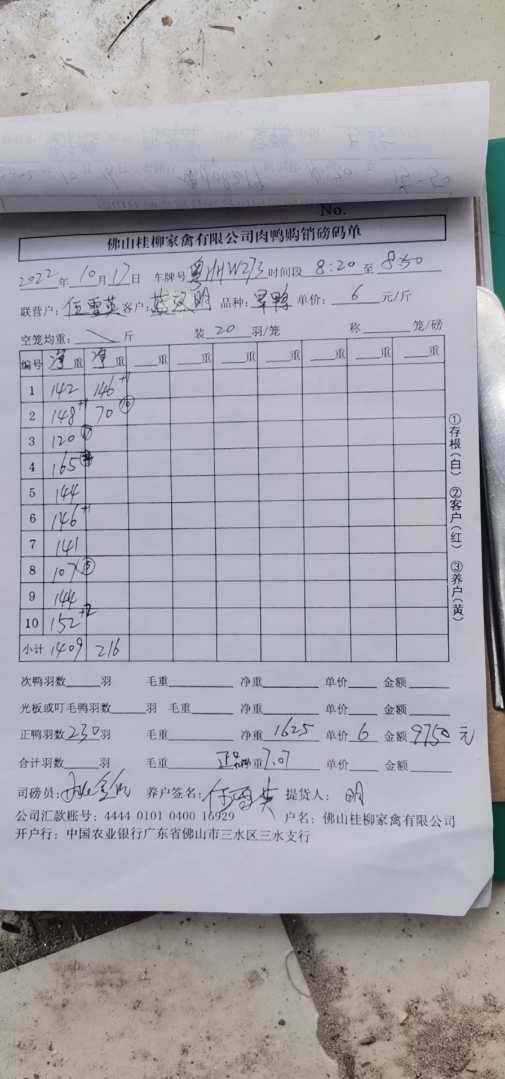 No.
佛山桂柳家禽有限公司肉鸭购销磅码单
2022年10月17日 车牌号粤HW273时间段 8:20 至 8:50
联营户：伍雪英 客户： 品种：旱鸭 单价：6 元/斤
空笼均重： 斤 装 20 羽/笼 称 笼/磅
编号 净重 净重 重 重 重 重 重 重
1 142 146+1
2 148+1 70⑩
3 120
4 165
5 144
6 146+1
7 141
8 107
9 144
10 152+2
小计 1409 216
①存根(白) ②客户(红) ③养户(黄)
次鸭羽数 羽 毛重 净重 单价 金额
光板或叮毛鸭羽数 羽 毛重 净重 单价 金额
正鸭羽数230羽 毛重 净重 1625 单价 6 金额 9750 元
合计羽数 羽 毛重 正品均重7.07 单价 金额
司磅员： 养户签名：伍雪英 提货人：明
公司汇款账号：4444 0101 0400 16929 户名：佛山桂柳家禽有限公司
开户行：中国农业银行广东省佛山市三水区三水支行